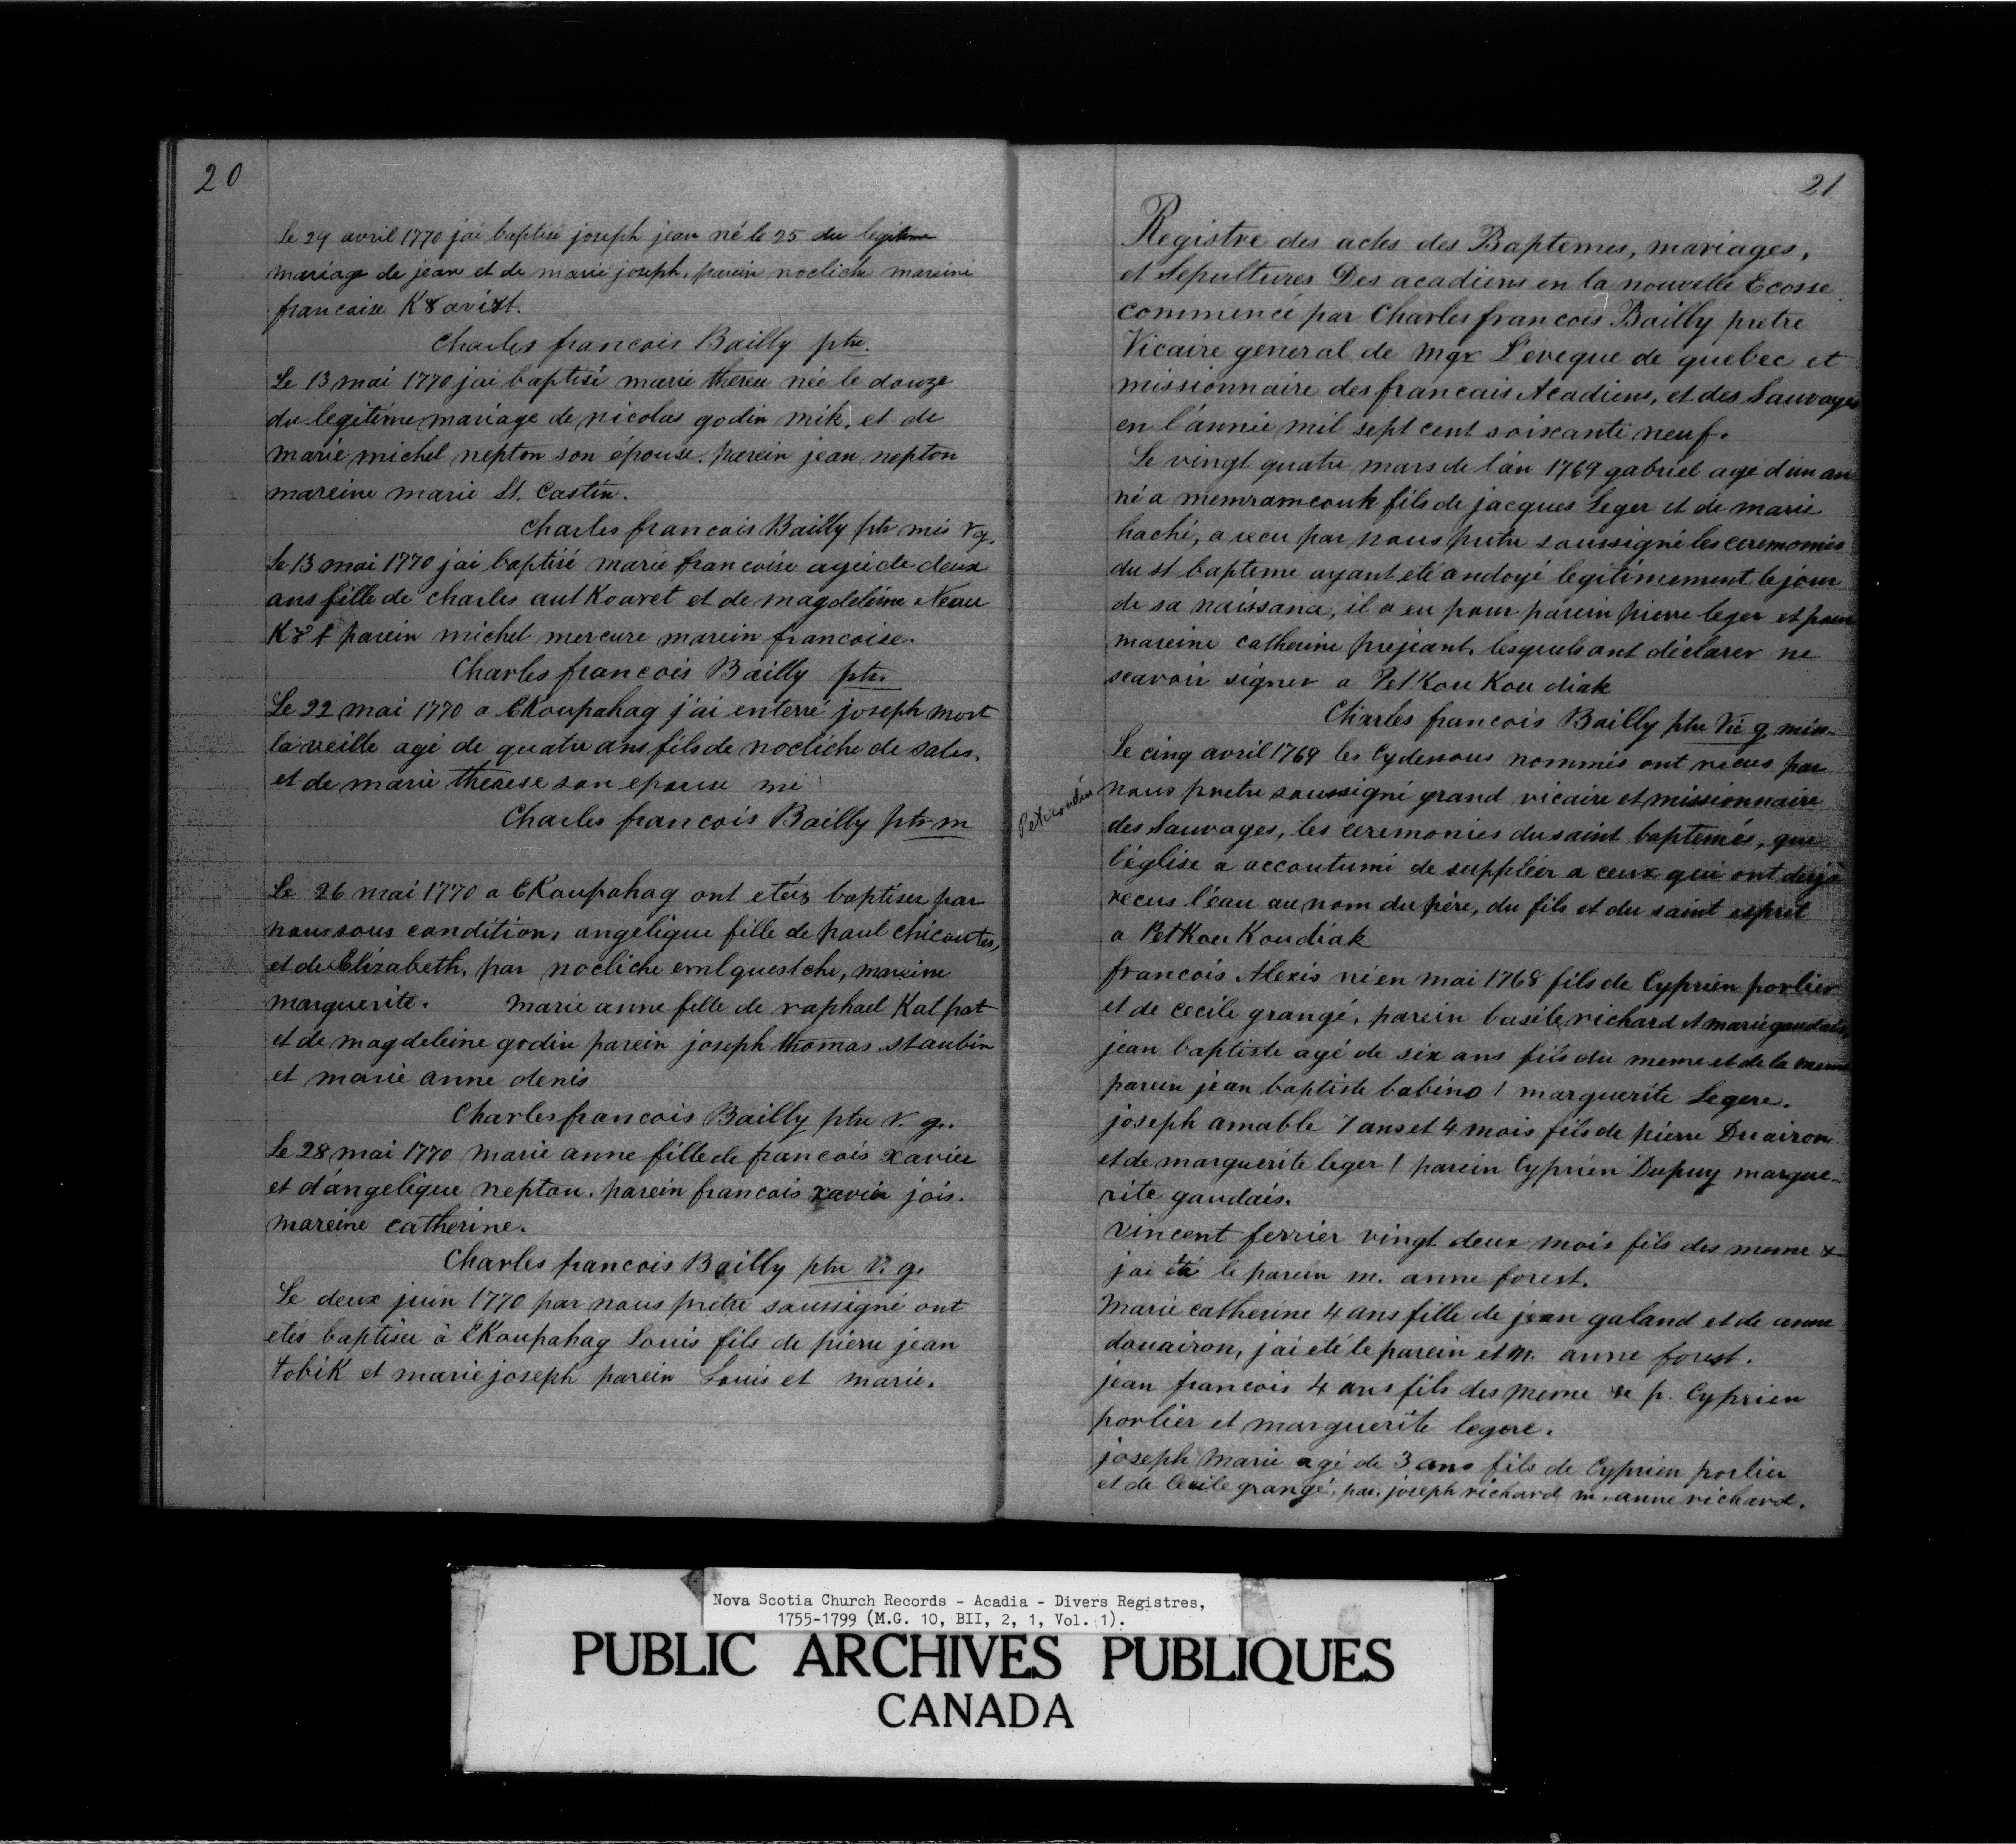 20
Le 29 avril 1770 jai baptisé joseph jean né le 25 du legitime
mariage de jean et de marie joseph, parein nocliche mareine
francaise K8avi8t.
Charles francois Bailly ptre.
Le 13 mai 1770 jai baptisé marie therese née le douze
du legitime mariage de nicolas godin mik, et de
marie michel nepton son épouse. parein jean nepton
mareine marie St. Castin.
Charles francois Bailly ptr mis v g.
Le 13 mai 1770 jai baptisé marie francoise agée de deux
ans fille de charles autKoaret et de magdeleine Neau
K8t parein michel mercure marein francoise.
Charles francois Bailly ptr.
Le 22 mai 1770 a EKoupahag j'ai enterré joseph mort
la veille agé de quatre ans fils de nocliche de sales,
et de marie therese son epouse mi
Charles francois Bailly ptr m
Le 26 mai 1770 a EKoupahag ont etés baptises par
nous sous condition, angelique fille de paul chicoutes,
et de Elizabeth, par nocliche emlquestche, mareine
marguerite. Marie anne fille de raphael Kat pat
et de magdeleine godin parein joseph thomas staubin
et marie anne denis
Charles francois Bailly ptre v. g.
Le 28 mai 1770 marie anne fille de francois xavier
et d'angelique neptou. parein francois xavier jois.
mareine catherine.
Charles francois Bailly ptre V. g.
Le deux juin 1770 par nous pretre soussigné ont
etés baptiser à EKoupahag Louis fils de pierre jean
tobiK et marie joseph parein Louis et marie.
21
Registre des actes des Baptemes, mariages,
et Sepultures Des acadiens en la nouvelle Ecosse
commencé par Charles francois Bailly pretre
Vicaire general de Mgr L'éveque de quebec et
missionnaire des francais Acadiens, et des Sauvages
en l'année mil sept cent soixante neuf.
Le vingt quatre mars de l'an 1769 gabriel agé d'un an
né a memramcouk fils de jacques Leger et de marie
haché, a recu par nous pretre soussigné les ceremonies
du st bapteme ayant eté andoyé legitimement le jour
de sa naissance, il a eu pour parein pierre leger et pour
mareine catherine prejeant, lesquels ont déclarer ne
scavoir signer a PetKouKoudiak
Charles francois Bailly ptre Vic g miss.
Le cinq avril 1769 les cydessous nommés ont recus par
nous pretre soussigné grand vicaire et missionnaire
des Sauvages, les ceremonies du saint baptemés, que
l'église a accoutumé de suppléer a ceux qui ont deja
recus l'éau au nom du père, du fils et du saint esprit
a PetKouKoudiak
francois Alexis né en mai 1768 fils de Cyprien porlier
et de cecile grangé, parein basile richard et marie gaudais,
jean baptiste agé de six ans fils du meme et de la meme
parein jean baptiste babino / marguerite Legere.
joseph amable 7 ans et 4 mois fils de pierre Duairon
et de marguerite leger / parein Cyprien Dupuy margue-
rite gaudais.
vincent ferrier vingt deux mois fils des meme &
jai été le parein m. anne forest.
Marie catherine 4 ans fille de jean galand et de anne
douairon, jai eté le parein et m. anne forest.
jean francois 4 ans fils des meme p. Cyprien
porlier et marguerite legere.
joseph Marie agé de 3 ans fils de Cyprien porlier
et de Cecile grangé, par. joseph richard m. anne richard.
Nova Scotia Church Records - Acadia - Divers Registres,
1755-1799 (M.G. 10, BII, 2, 1, Vol. 1).
PUBLIC ARCHIVES PUBLIQUES
CANADA